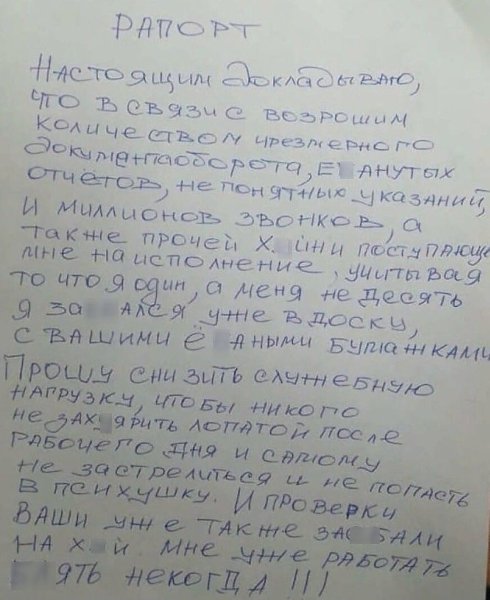 РАПОРТ
Настоящим докладываю,
что в связи с возрошим
количеством чрезмерного
документаоборота, Е анутых
отчётов, не понятных указаний,
и миллионов звонков, а
также прочей х йни поступающе
мне на исполнение, учитывая
то что я один, а меня не десять
я за ался уже в доску,
с вашими ё аными бумажками
Прошу снизить служебную
нагрузку, чтобы никого
не зах ярить лопатой после
рабочего дня и самому
не застрелиться и не попасть
в психушку. И проверки
ваши уже также за бали
на х й. Мне уже работать
ять некогда!!!